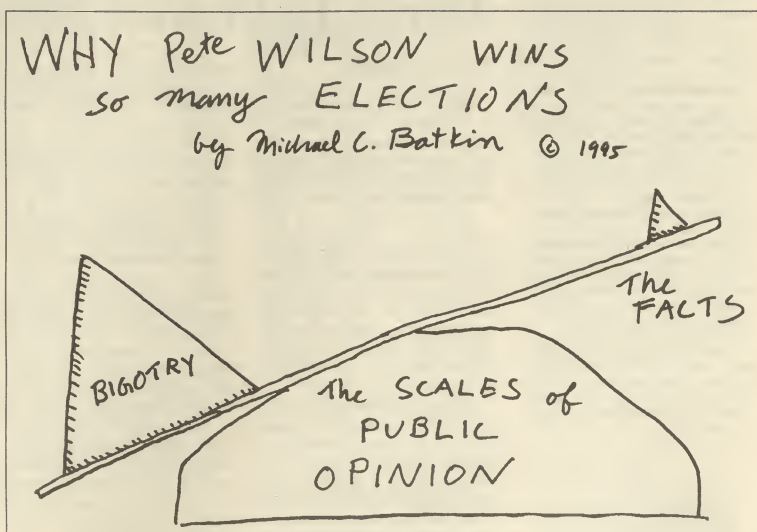 WHY Pete WILSON WINS
so many ELECTIONS
by Michael C. Batkin © 1995
The
FACTS
BIGOTRY
The SCALES of
PUBLIC
OPINION